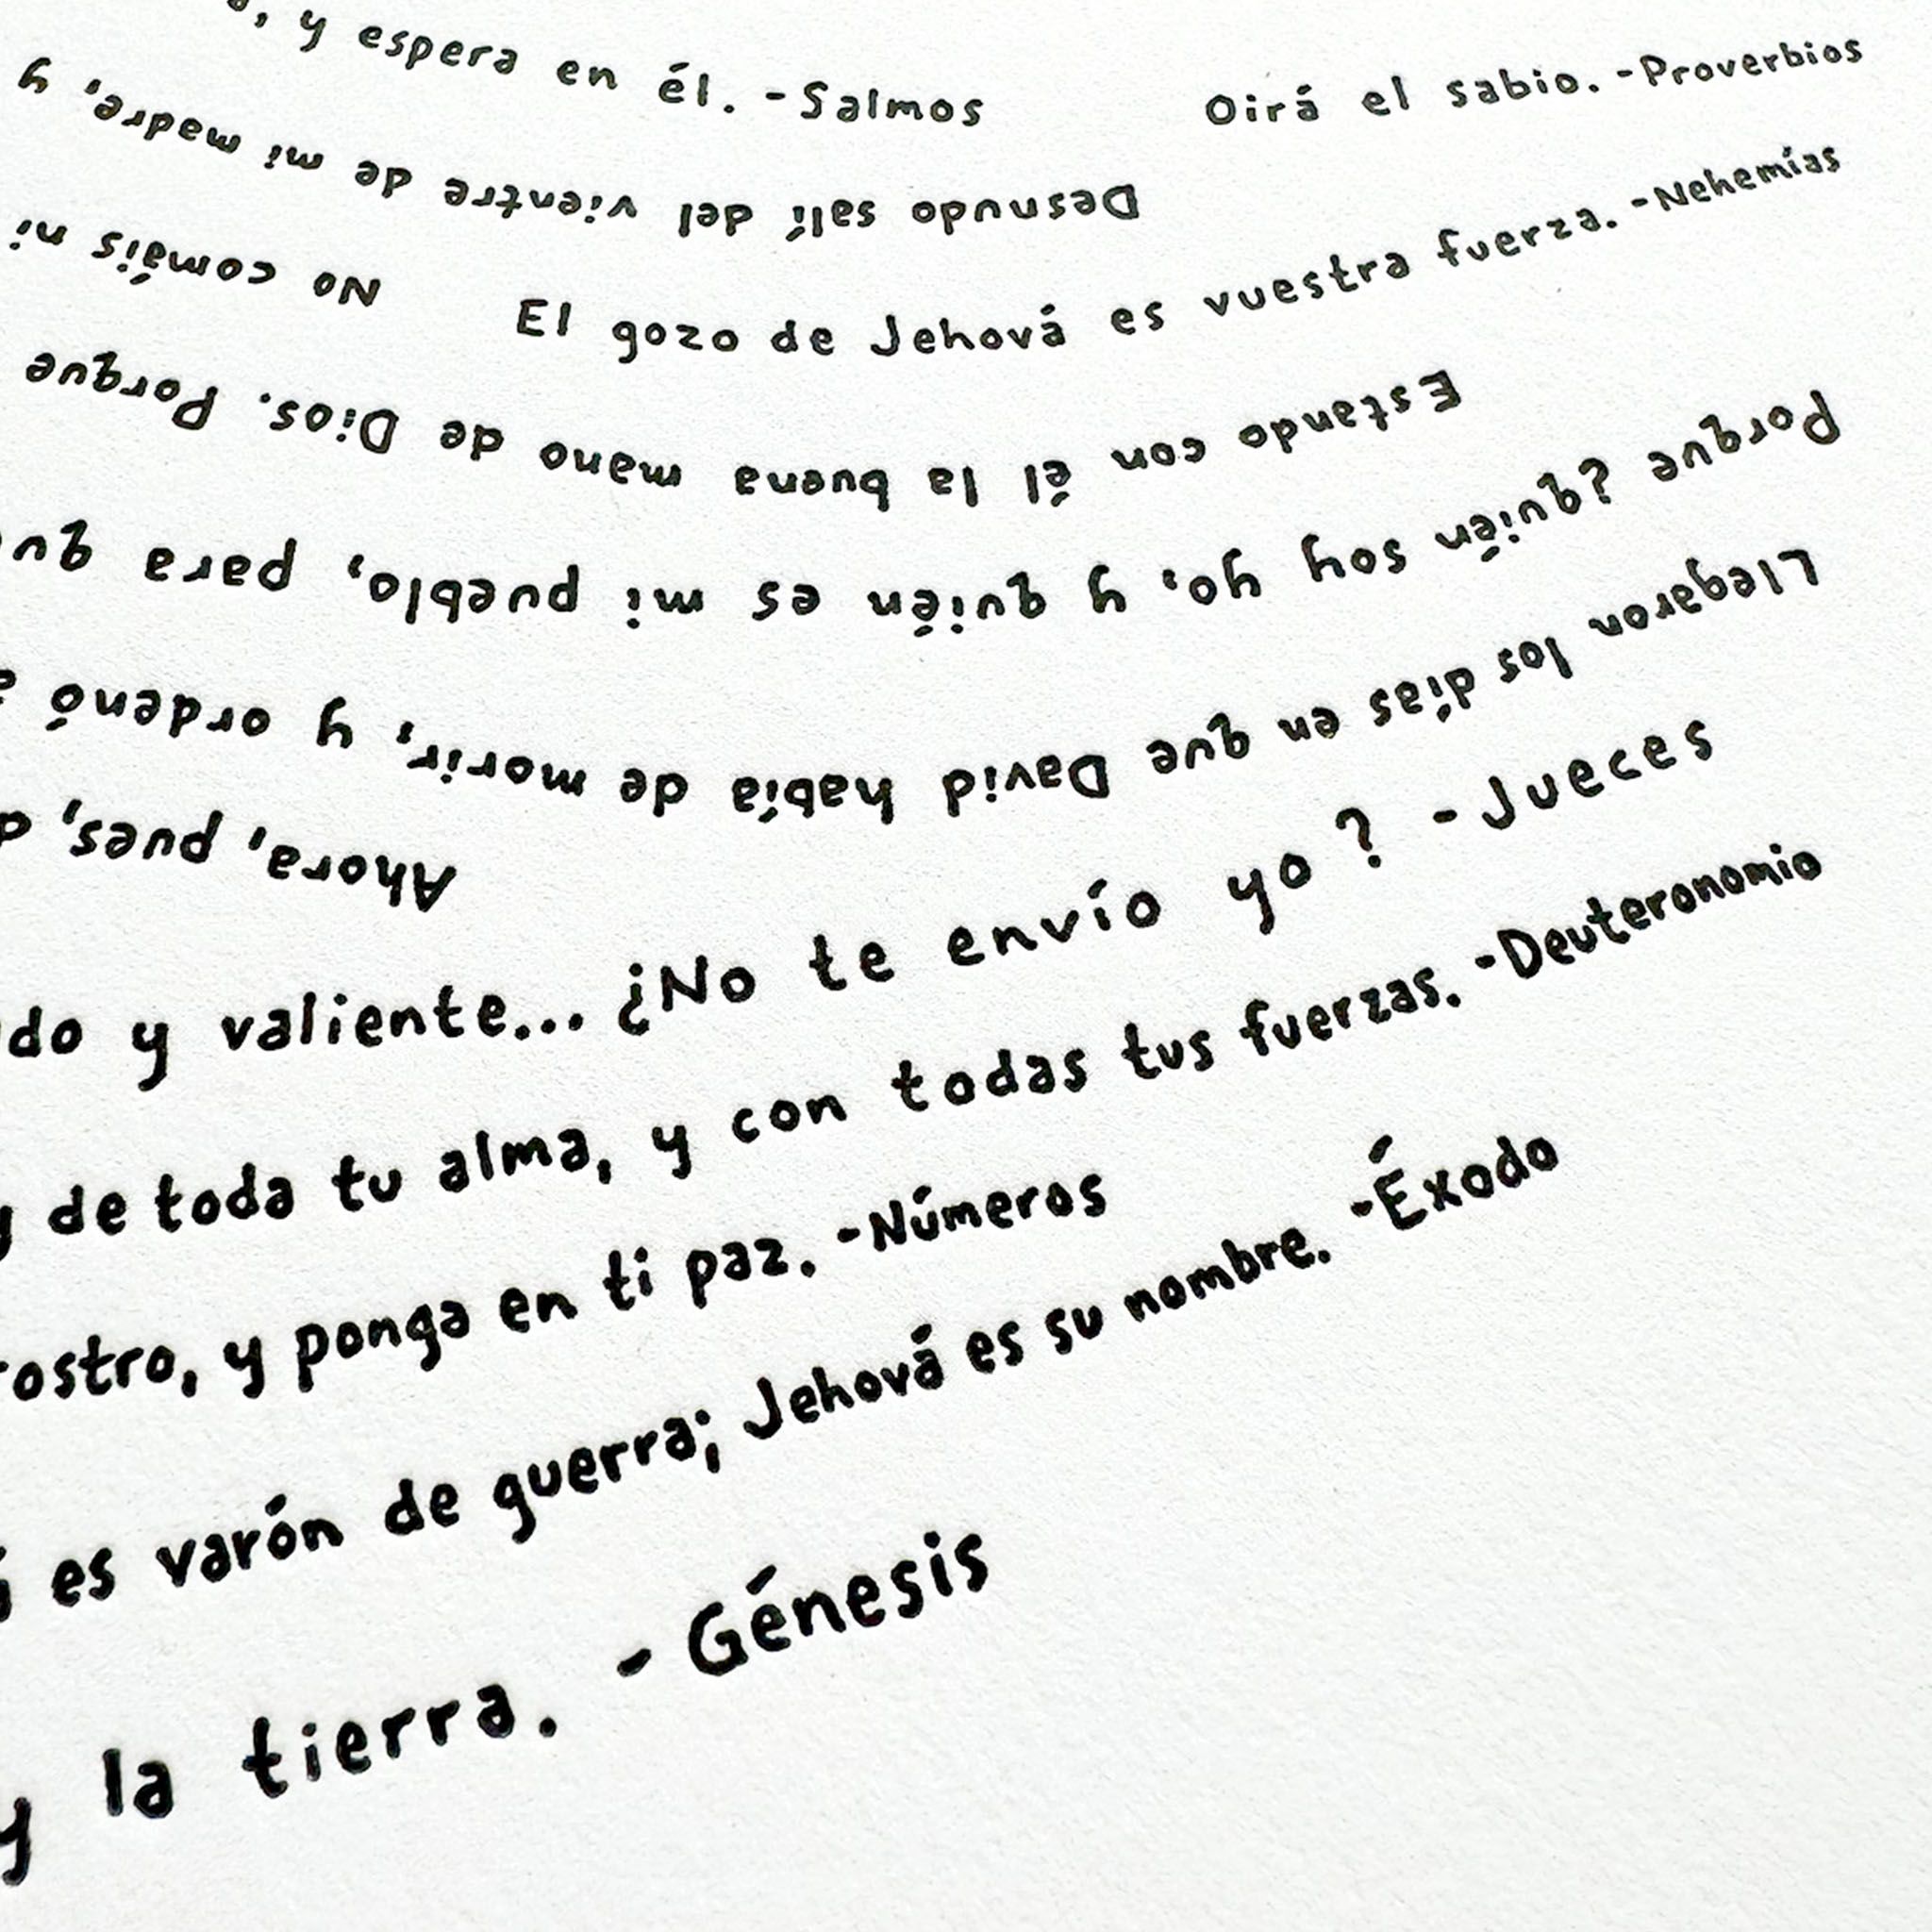 , y espera en él. -Salmos
Oirá el sabio. -Proverbios
Desnudo salí del vientre de mi madre, y
El gozo de Jehová es vuestra fuerza. -Nehemías
No comáis ni
Estando con él la buena mano de Dios. Porque
Porque ¿quién soy yo, y quién es mi pueblo, para
Llegaron los días en que David había de morir, y ordenó
Ahora, pues,
y valiente... ¿No te envío yo? -Jueces
y de toda tu alma, y con todas tus fuerzas. -Deuteronomio
rostro, y ponga en ti paz. -Números
es varón de guerra; Jehová es su nombre. -Éxodo
y la tierra. - Génesis